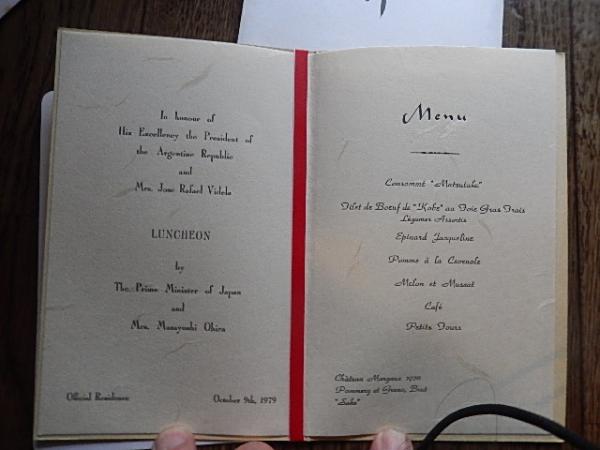 In honour of
His Excellency the President of
the Argentine Republic
and
Mrs. Jose Rafael Videla
LUNCHEON
by
The Prime Minister of Japan
and
Mrs. Masayoshi Ohira
Official Residence
October 9th, 1979
Menu
Consommé "Matsutake"
Filet de Bœuf de "Kobe" au Foie Gras Frais
Légumes Assortis
Epinard Jacqueline
Pomme à la Cevenole
Melon et Muscat
Café
Petits Fours
Château Margaux
Pommery et Greno, Brut
"Sake"